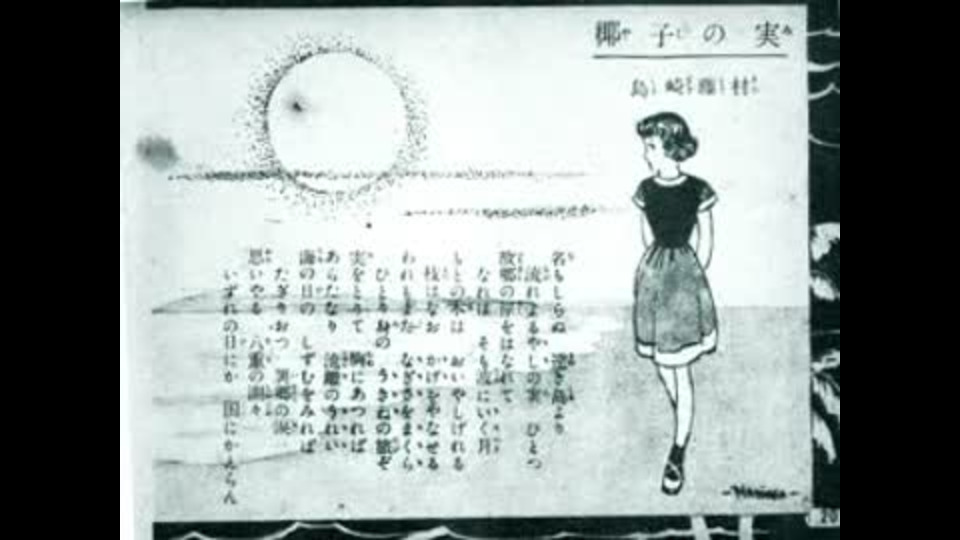 椰子の実
島崎藤村
名もしらぬ 遠き島より
流れよるやしの実 ひとつ
故郷の岸をはなれて
なれは そも波にいく月
もとの木は おいやしげれる
枝はなお かげをやなせる
われもまた なぎさをまくら
ひとり身の うきねの旅ぞ
実をとりて 胸にあつれば
あらたなり 流離のうれい
海の日の しずむをみれば
たぎりおつ 異郷の涙
思いやる 八重の潮々
いずれの日にか 国にかえらん
20